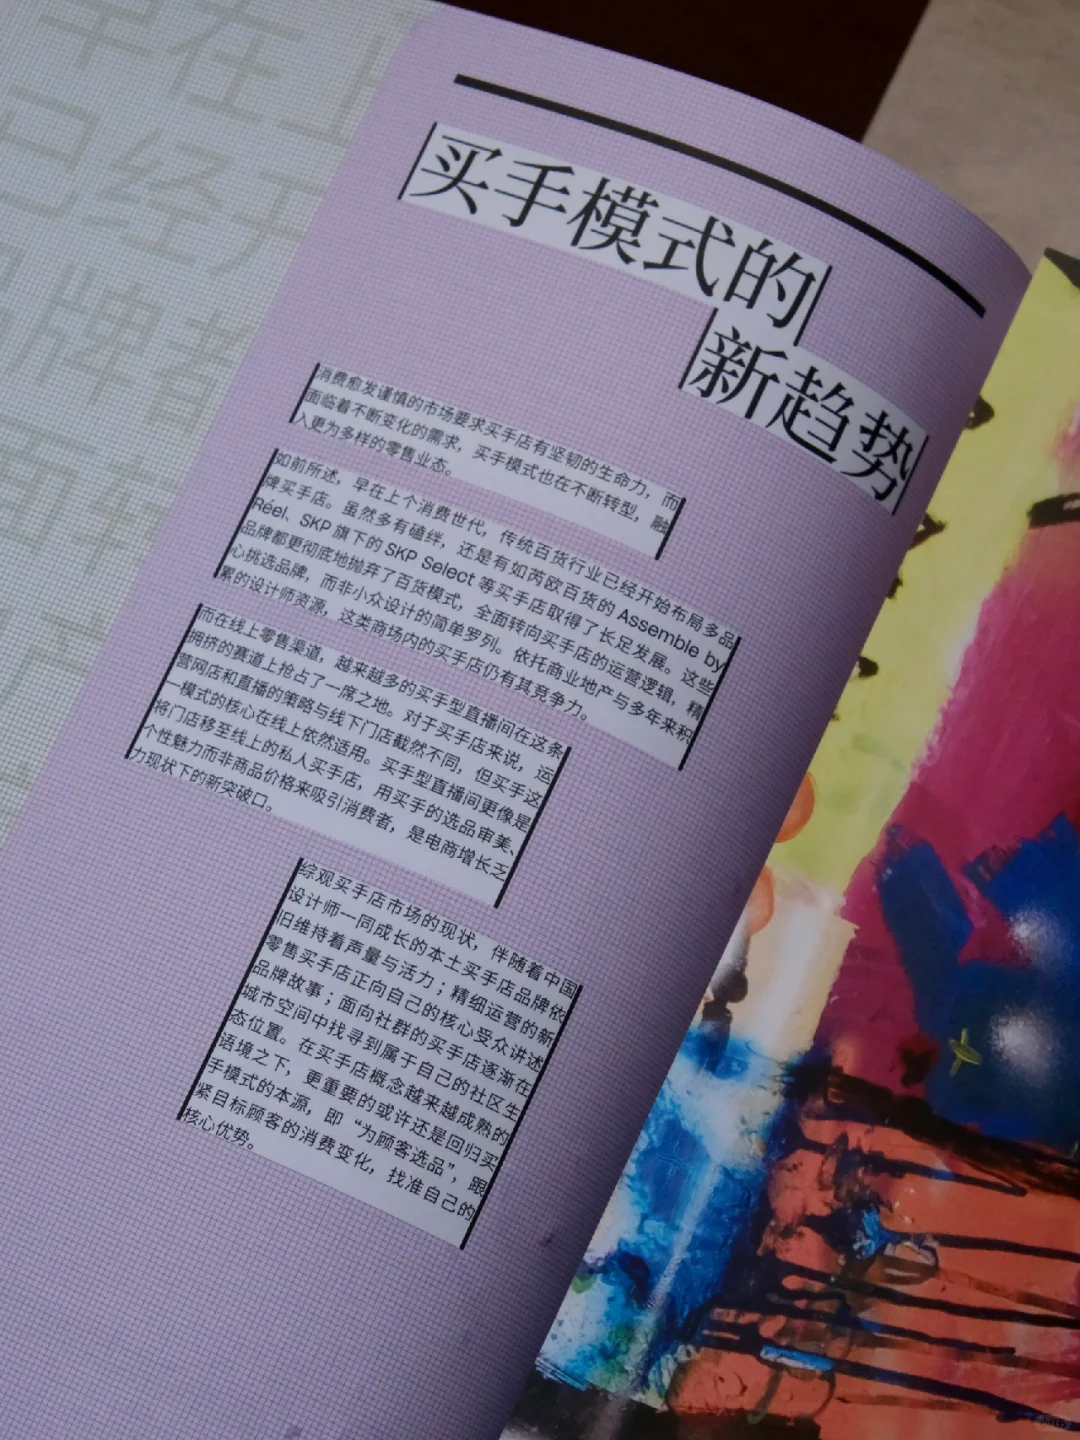 买手模式的
新趋势
消费愈发谨慎的市场要求买手店有坚韧的生命力，而
面临着不断变化的需求，买手模式也在不断转型，融
入更为多样的零售业态。
如前所述，早在上个消费世代，传统百货行业已经开始布局多品
牌买手店。虽然多有磕绊，还是有如芮欧百货的 Assemble by
Réel、SKP 旗下的 SKP Select 等买手店取得了长足发展。这些
品牌都更彻底地抛弃了百货模式，全面转向买手店的运营逻辑，精
心挑选品牌，而非小众设计的简单罗列。依托商业地产与多年来积
累的设计师资源，这类商场内的买手店仍有其竞争力。
而在线上零售渠道，越来越多的买手型直播间在这条
拥挤的赛道上抢占了一席之地。对于买手店来说，运
营网店和直播的策略与线下门店截然不同，但买手这
一模式的核心在线上依然适用。买手型直播间更像是
将门店移至线上的私人买手店，用买手的选品审美、
个性魅力而非商品价格来吸引消费者，是电商增长乏
力现状下的新突破口。
综观买手店市场的现状，伴随着中国
设计师一同成长的本土买手店品牌依
旧维持着声量与活力；精细运营的新
零售买手店正向自己的核心受众讲述
品牌故事；面向社群的买手店逐渐在
城市空间中找寻到属于自己的社区生
态位置。在买手店概念越来越成熟的
语境之下，更重要的或许还是回归买
手模式的本源，即“为顾客选品”，跟
紧目标顾客的消费变化，找准自己的
核心优势。
早在上
已经开
品牌都